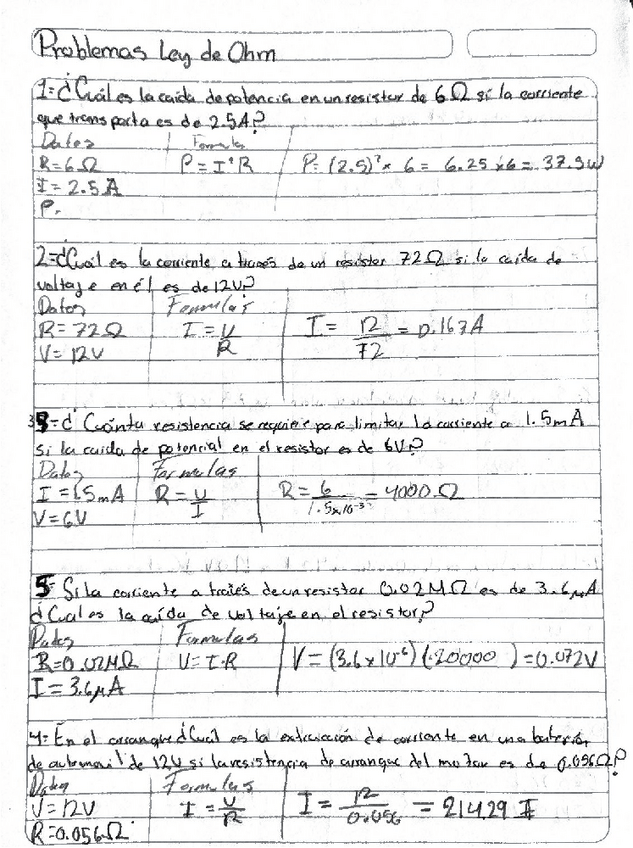 Problemas Ley de Ohm
1=¿Cuál es la caida de potencia en un resistor de 6Ω si la corriente
que transporta es de 2.5A?
Datos Formula
R=6Ω P=I²R P=(2.5)²×6= 6.25×6= 37.5W
I=2.5A
P.
2=¿Cual es la corriente a traves de un resistor 72Ω si la caida de
voltaje en él es de 12V?
Datos Formula's
R=72Ω I=V/R I=12/72=0.167A
V=12V
3=¿Cuánta resistencia se requiere para limitar la corriente a 1.5mA
si la caida de potencial en el resistor es de 6V?
Datos Formulas
I=1.5mA R=V/I R=6/1.5×10⁻³=4000Ω
V=6V
5= Si la corriente a través de un resistor 0.02MΩ es de 3.6μA
¿Cual es la caída de voltaje en el resistor?
Datos Formulas
R=0.02MΩ V=I·R V=(3.6×10⁻⁶)(20000)=0.072V
I=3.6μA
4= En el arranque ¿Cuál es la extracción de corriente en una batería
de automovil de 12V si la resistencia de arranque del motor es de 0.056Ω?
Datos Formulas
V=12V I=V/R I=12/0.056=214.29
R=0.056Ω